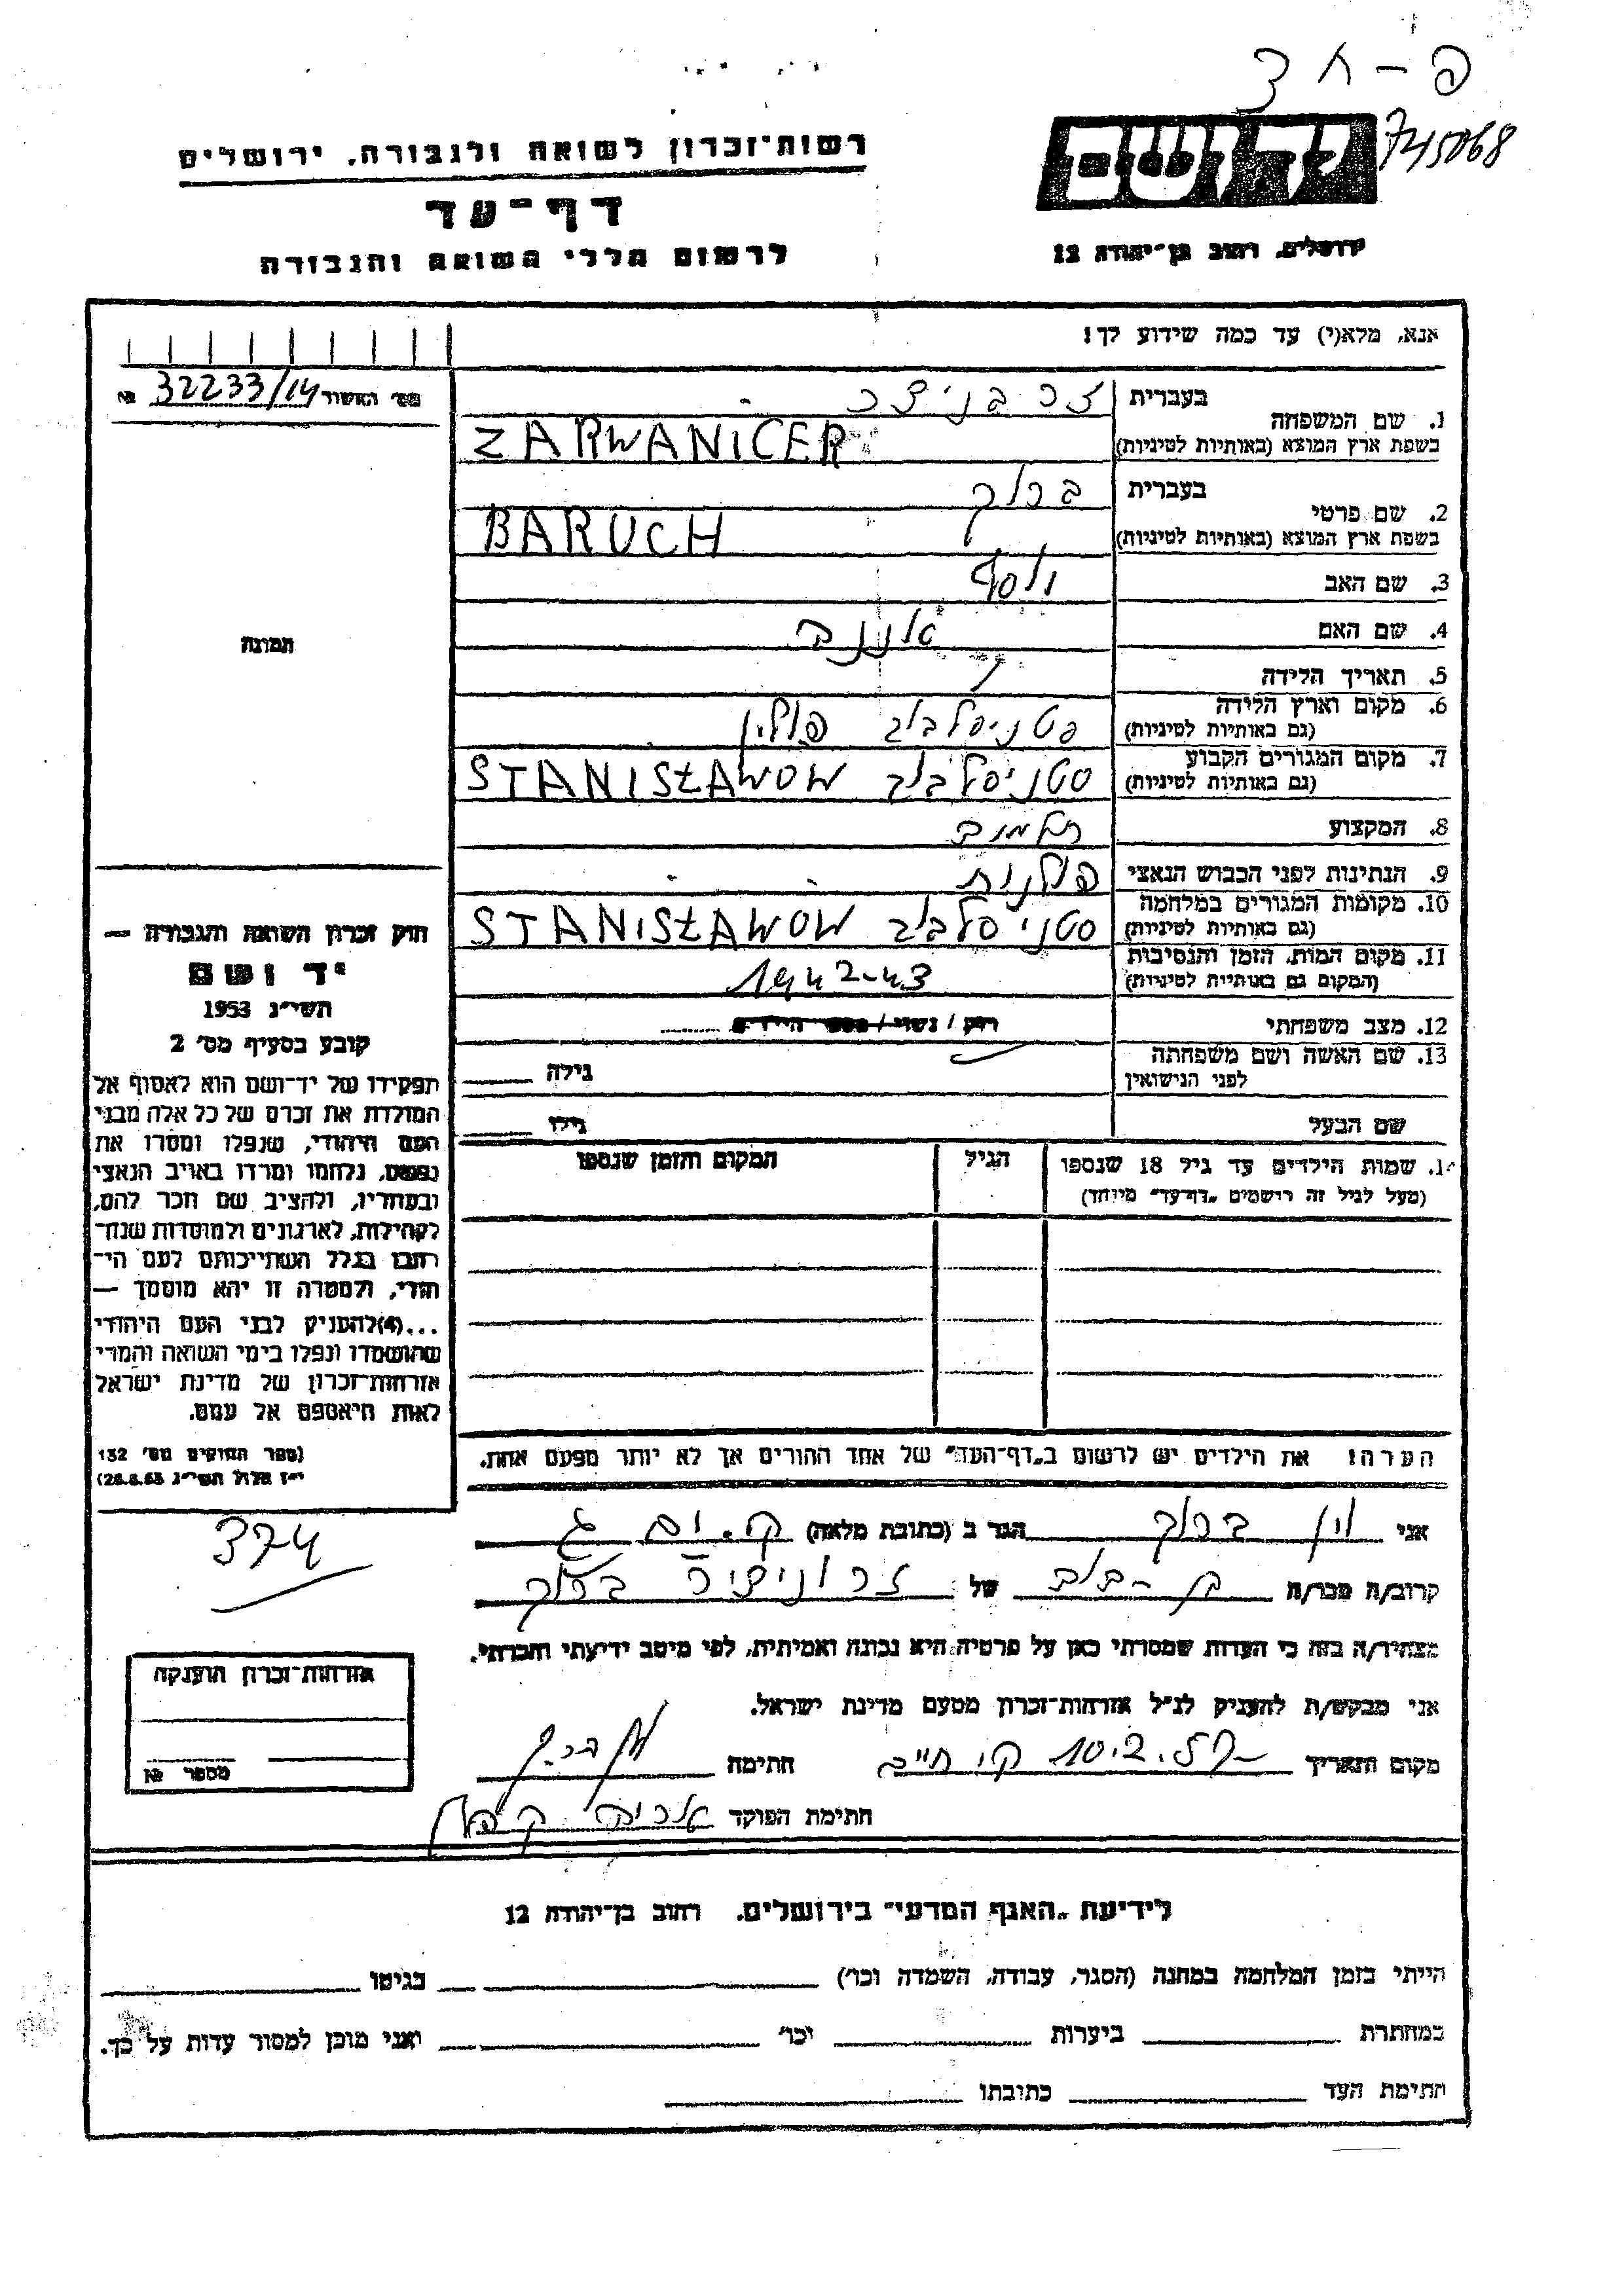 פ - ר צ
745068
יד ושם
ירושלים, רחוב בן־יהודה 12
רשות־זכרון לשואה ולגבורה, ירושלים
דף־עד
לרשום חללי השואה והגבורה
אנא, מלא(י) עד כמה שידוע לך!
מס׳ האשור 32233/14 №
1. שם המשפחה בעברית
בשפת ארץ המוצא (באותיות לטיניות) ZARWANICER
2. שם פרטי בעברית ברוך
בשפת ארץ המוצא (באותיות לטיניות) BARUCH
3. שם האב יוסף
4. שם האם
5. תאריך הלידה
6. מקום וארץ הלידה סטניסלבוב פולין
(גם באותיות לטיניות)
7. מקום המגורים הקבוע סטניסלבוב STANISŁAWOW
(גם באותיות לטיניות)
8. המקצוע
9. הנתינות לפני הכבוש הנאצי פולנית
10. מקומות המגורים במלחמה סטניסלבוב STANISŁAWOW
(גם באותיות לטיניות)
11. מקום המות, הזמן והנסיבות 1942-43
(המקום גם באותיות לטיניות)
12. מצב משפחתי רווק / נשוי / מספר הילדים
13. שם האשה ושם משפחתה
לפני הנישואין גילה
שם הבעל גילו
14. שמות הילדים עד גיל 18 שנספו הגיל המקום והזמן שנספו
(מעל לגיל זה רישמים „דף־עד״ מיוחד)
הערה! את הילדים יש לרשום ב„דף־העד״ של אחד ההורים אך לא יותר מפעם אחת.
תמונה
חוק זכרון השואה והגבורה —
יד ושם
תשי״ג 1953
קובע בסעיף מס׳ 2
תפקידו של יד־ושם הוא לאסוף אל
המולדת את זכרם של כל אלה מבני
העם היהודי, שנפלו ומסרו את
נפשם, נלחמו ומרדו באויב הנאצי
ובעוזריו, ולהציב שם וזכר להם,
לקהילות, לארגונים ולמוסדות שנח־
רבו בגלל השתייכותם לעם הי־
הודי, ולמטרה זו יהא מוסמך —
...(4)להעניק לבני העם היהודי
שהושמדו ונפלו בימי השואה והמרי
אזרחות־זכרון של מדינת ישראל
לאות היאספם אל עמם.
(ספר החוקים מס׳ 132
י״ז אלול תשי״ג 28.8.53)
374
אני ברוך הגר ב (כתובת מלאה) ק. ים ג
קרוב/ה מכר/ה בן-דוד של ברוך
מצהיר/ה בזה כי העדות שמסרתי כאן על פרטיה היא נכונה ואמיתית, לפי מיטב ידיעתי והכרתי.
אני מבקש/ת להעניק לנ״ל אזרחות־זכרון מטעם מדינת ישראל.
מקום ותאריך 10.2.57 ק׳ חיים חתימה
חתימת הפוקד
אזרחות־זכרון הוענקה
מספר №
לידיעת „האגף המדעי״ בירושלים, רחוב בן־יהודה 12
הייתי בזמן המלחמה במחנה (הסגר, עבודה, השמדה וכו׳) בגיטו
במחתרת ביערות וכו׳ ואני מוכן למסור עדות על כך.
חתימת העד כתובתו